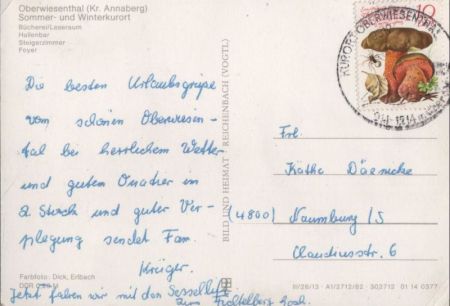 Oberwiesenthal (Kr. Annaberg)
Sommer- und Winterkurort
Bücherei/Leseraum
Hallenbar
Steigerzimmer
Foyer
Die besten Urlaubsgrüße
vom schönen Oberwiesen-
tal bei herrlichem Wetter
und gutem Quatier im
2. Stock und guter Ver-
pflegung sendet Fam.
Krüger.
Jetzt fahren wir mit den Sessellift
zum Fichtelberg hoch.
Farbfoto: Dick, Erlbach
BILD UND HEIMAT REICHENBACH (VOGTL)
10
KURORT OBERWIESENTHAL
Frl.
Käthe
(4800) Naumburg/S
Claudiusstr. 6
III/26/13 A1/2712/82 302712 01 14 0377